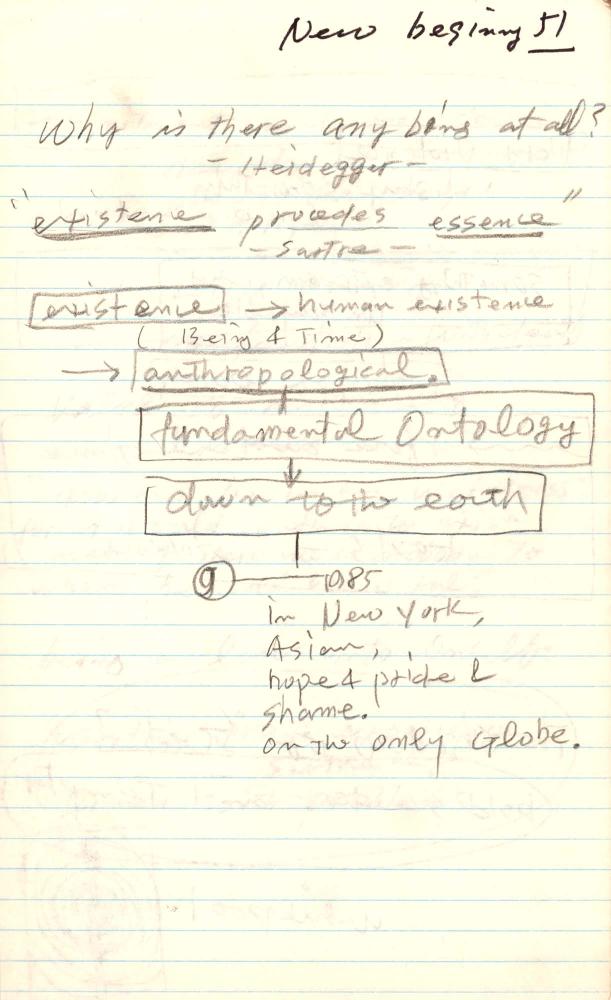 New beginny 51
Why is there any bing at all?
- Heidegger -
"existence precedes essence"
- Sartre -
existence → human existence
( Being & Time )
→ anthropological.
fundamental Ontology
down to the earth
9 — 1985
in New York,
Asian,
hope & pride &
shame.
on the only Globe.